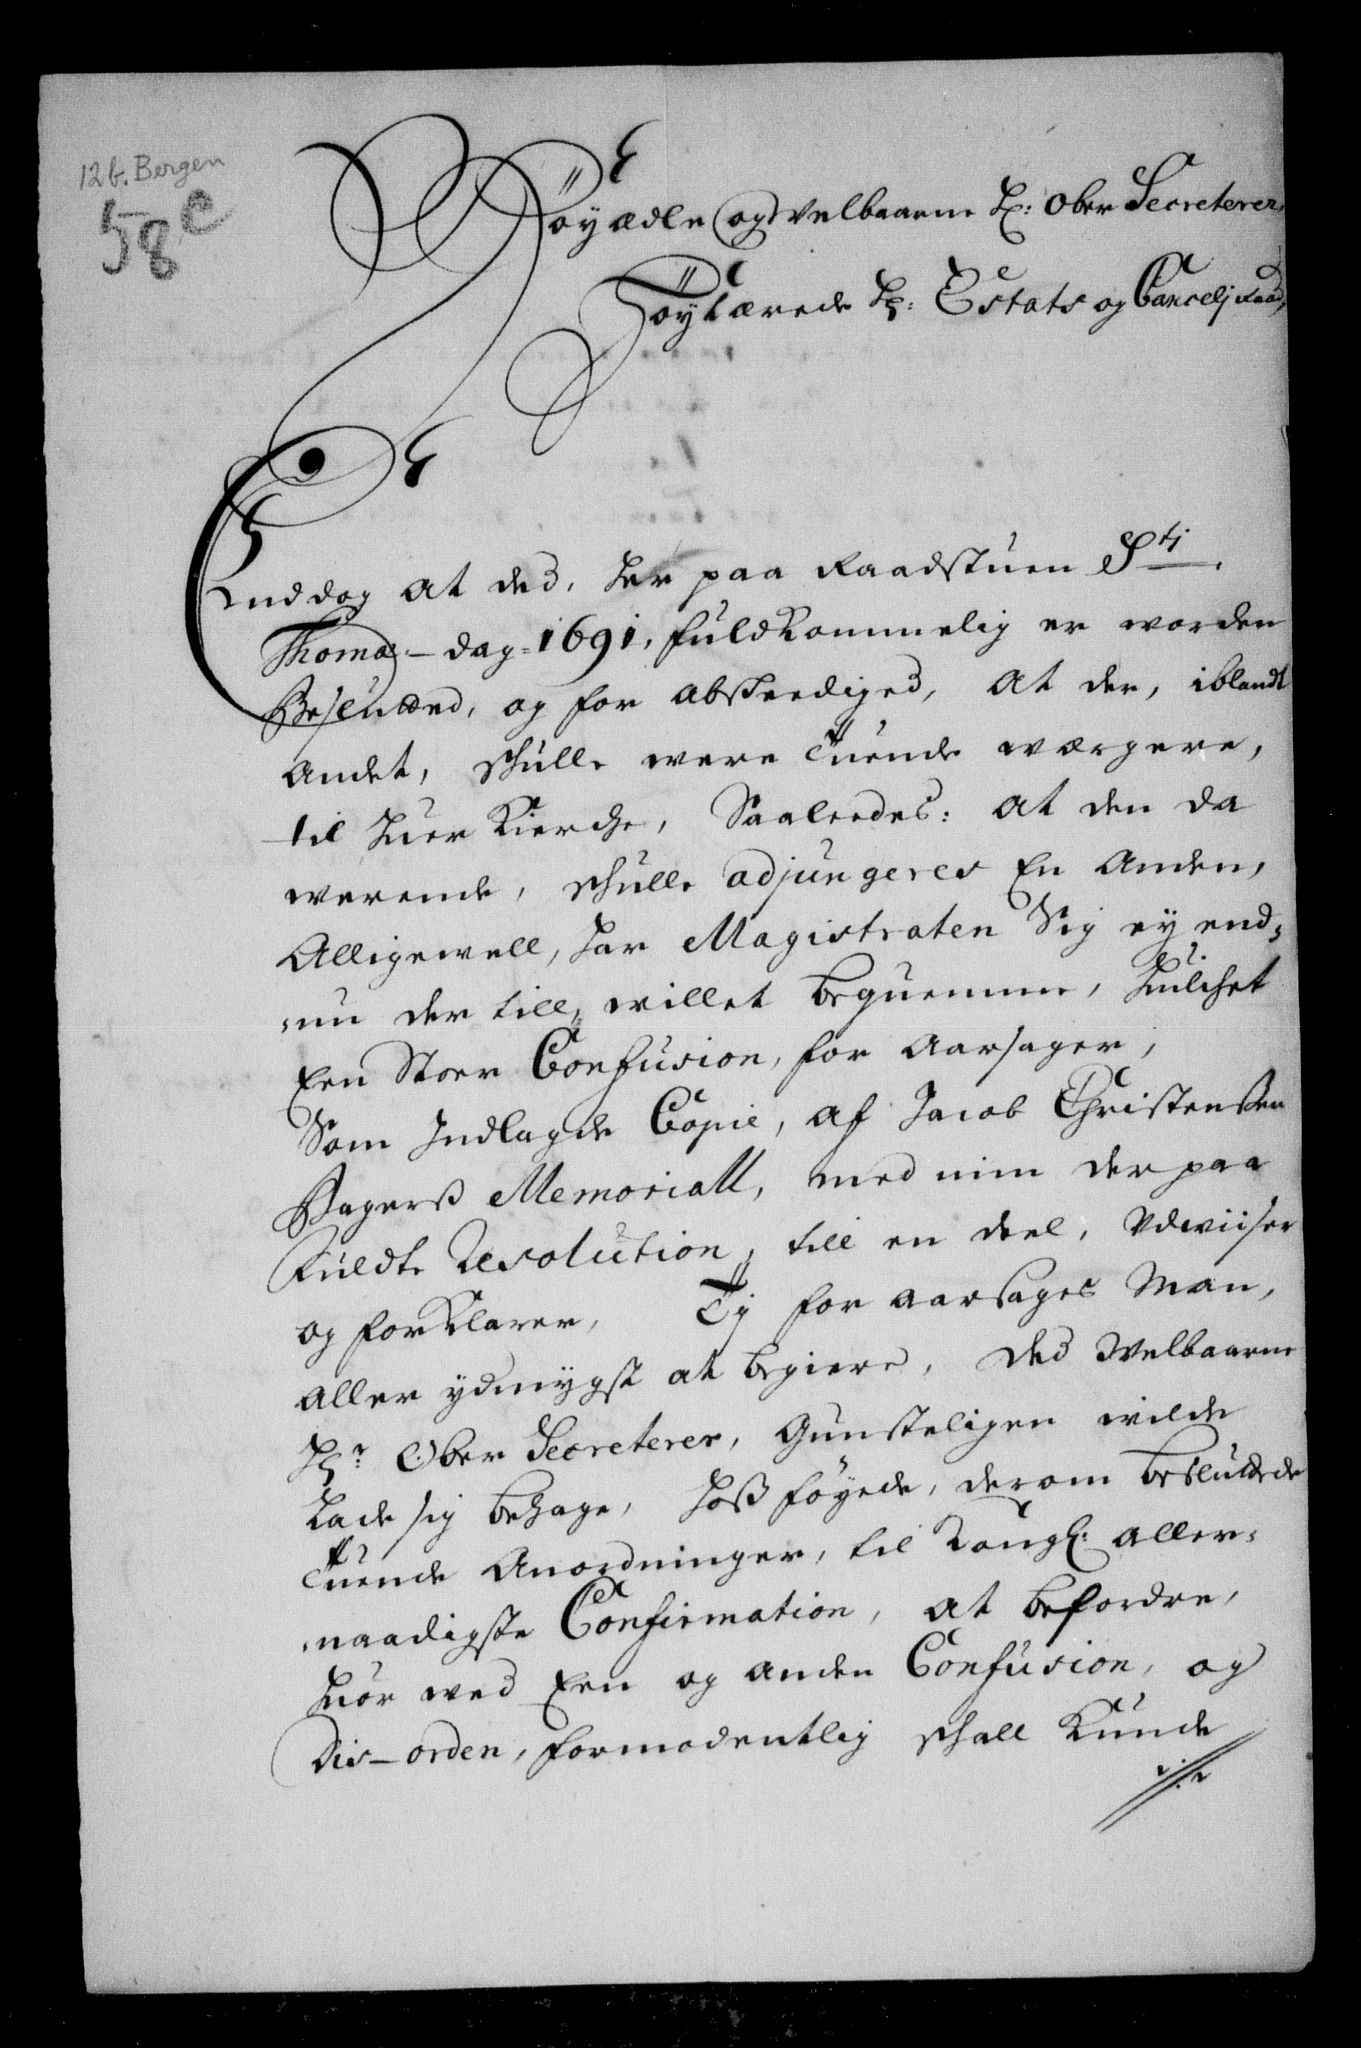 12b. Bergen
58c
Høyædle og Velbaarne Hr: Ober Secreterer,
Høylærede Hr: Estats og Cancelj Raad,
Enddog at ded, her paa Raadstuen Stj
Thomæ-dag-1691, fuldkommelig er worden
Besluttend, og for abskeediged, at der, iblandt
andet, skulle were tuende wærgere,
til huer Kierche, Saaleedes: at den da
werende, skulle adjungeres en anden,
Alligewell, har Magistraten Sig ey end-
nu der till, willet bequemme, huilchet
Een Stoer Confusion, for aarsager,
Som Indlagde Copie, af Jacob Christenssen
Bagerss Memoriall, med min der paa
fuldte Resolution, till en deel, Vdwiiser
og forklarer, Tj for aarsages Man,
aller ydmygst at begiere, ded Welbaarne
Hr Ober Secreterer, Gunsteligen wilde
Lade sig behage, hoss føyede, derom besluttede
tuende Anordninger, til Kongl: aller-
naadigste Confirmation, at befordre,
huor wed Een og anden Confusion, og
Dis-orden, formodentlig skall Kunde